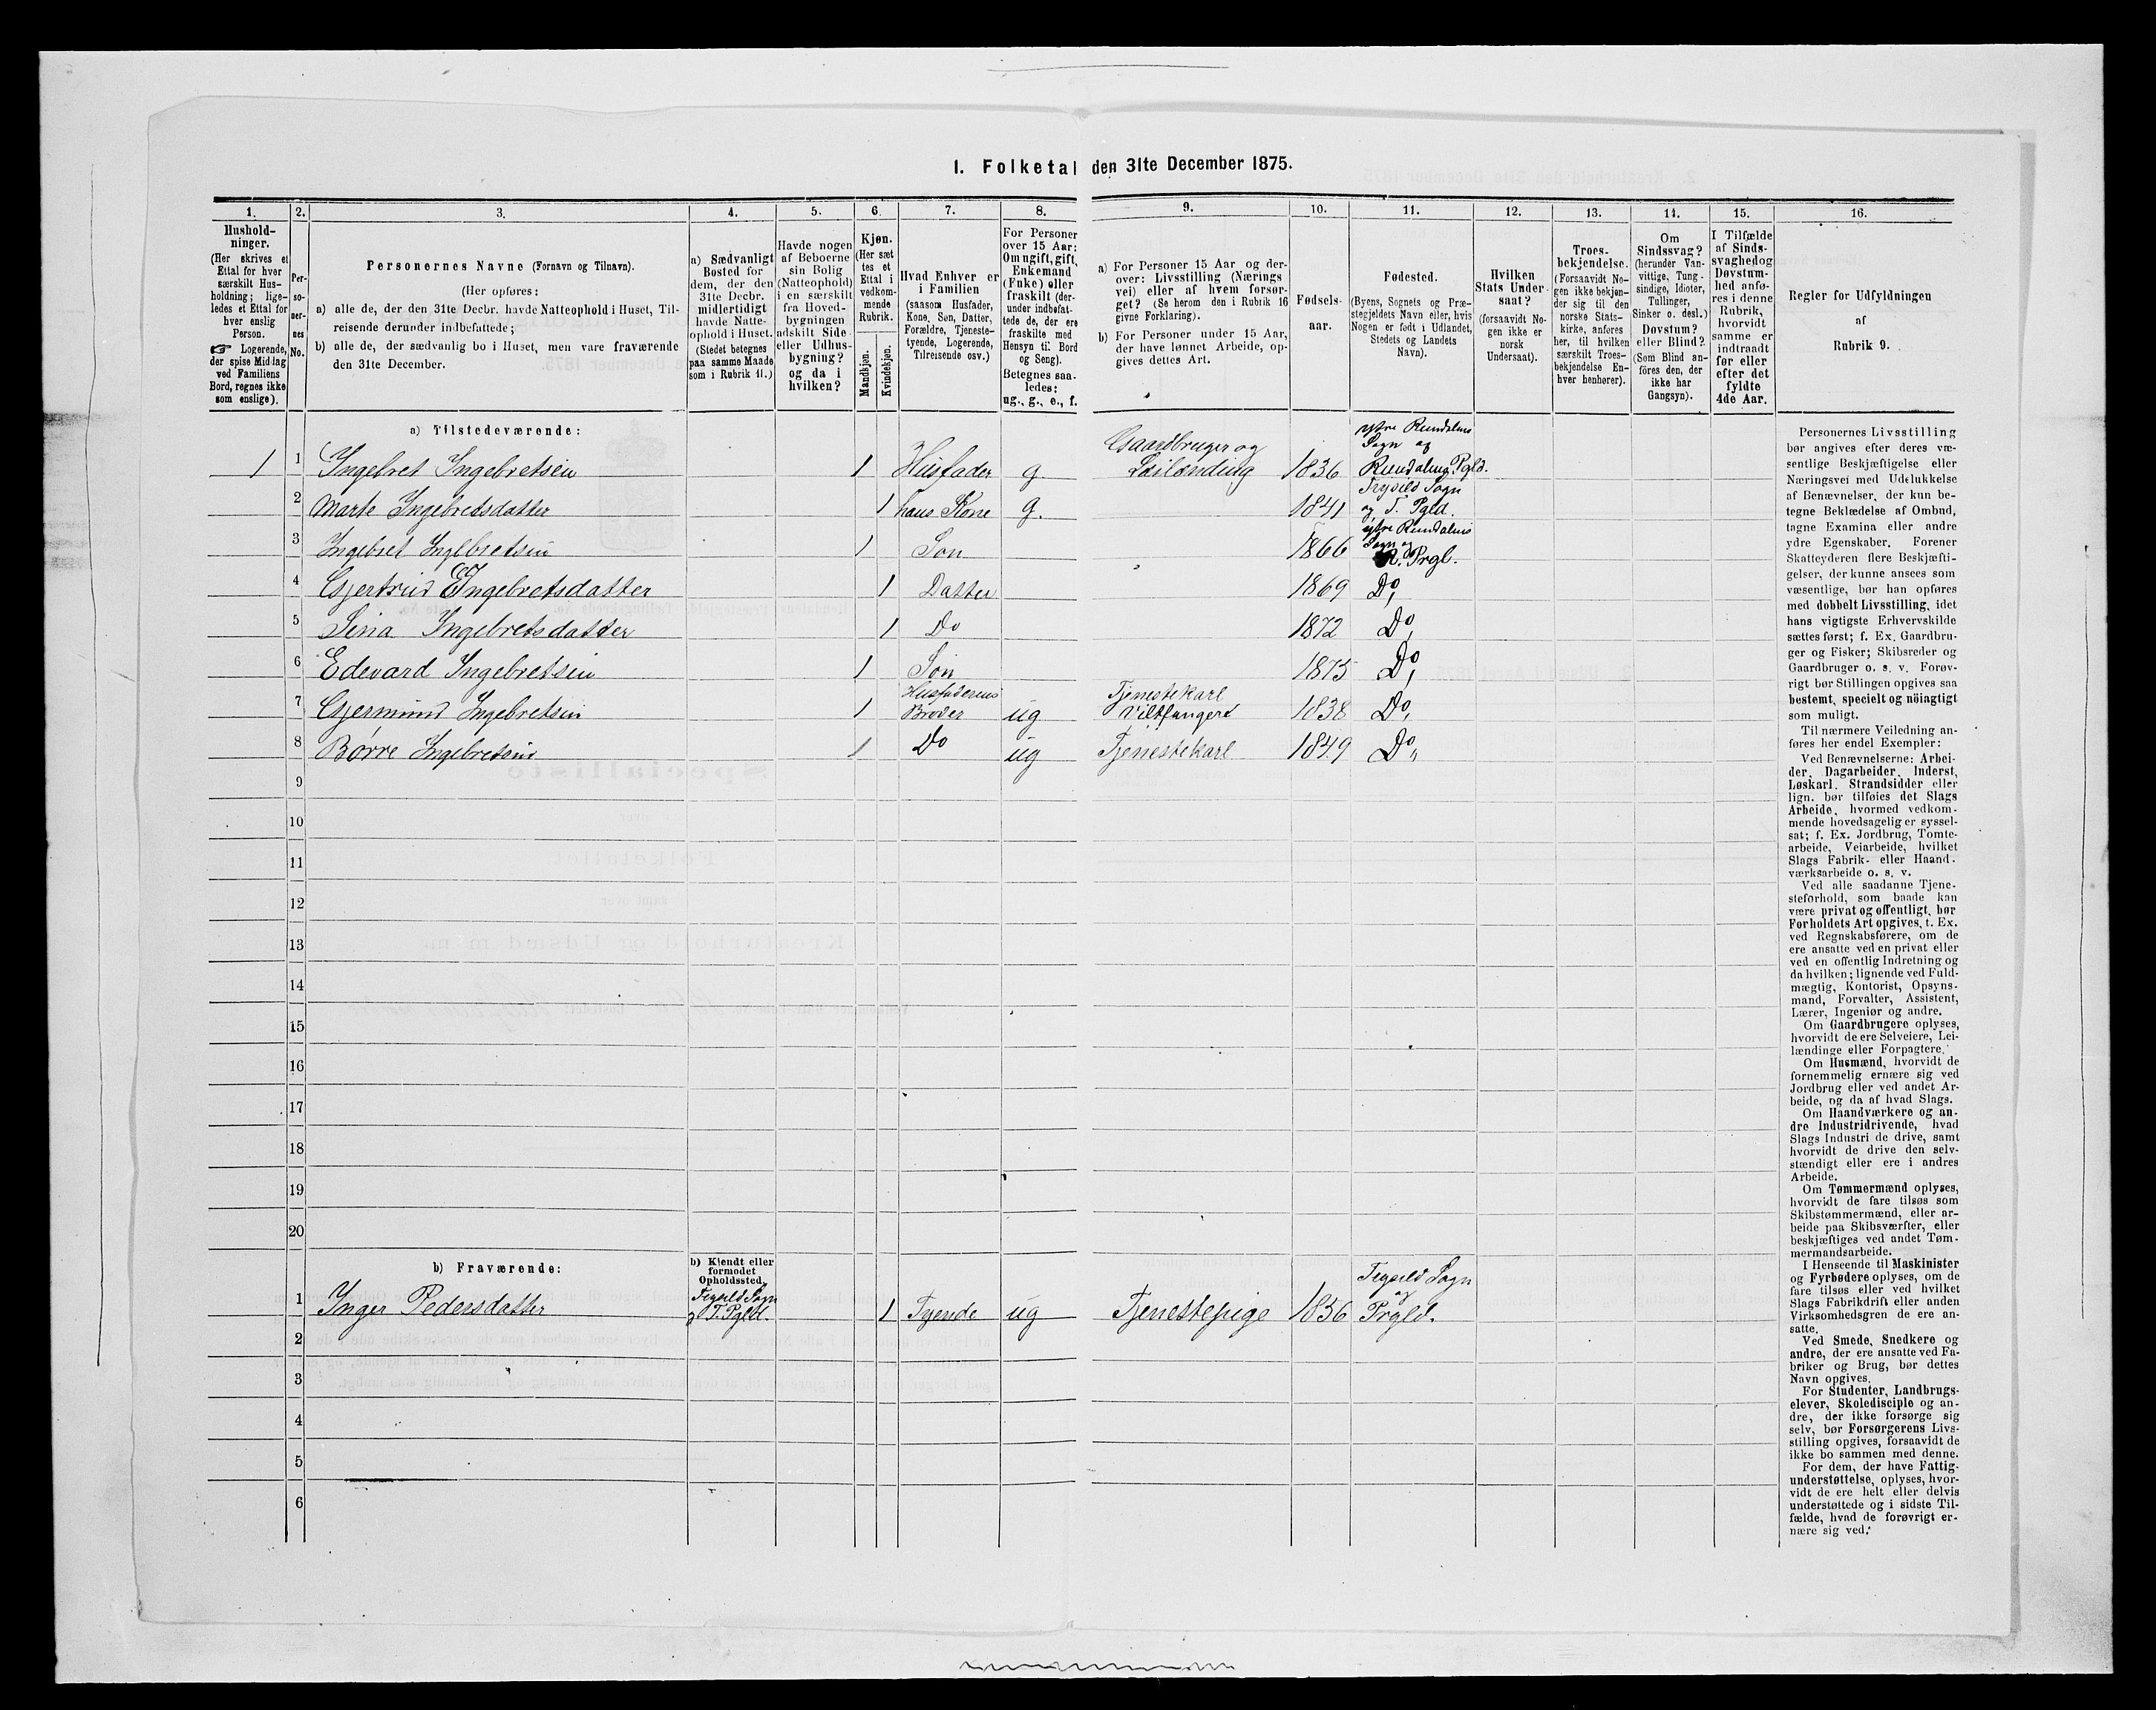 I. Folketal den 31te December 1875.
1.
2.
3.
4.
5.
6.
7.
8.
9.
10.
11.
12.
13.
14.
15.
16.
Hushold-
ninger.
(Her skrives et
Ettal for hver
særskilt Hus-
holdning; lige-
ledes et Ettal for
hver enslig
Person.
☞ Logerende,
der spise Middag
ved Familiens
Bord, regnes ikke
som enslige).
Per-
so-
ner-
nes
No.
Personernes Navne (Fornavn og Tilnavn).
(Her opføres:
a) alle de, der den 31te Decbr. havde Natteophold i Huset, Til-
reisende derunder indbefattede;
b) alle de, der sædvanlig bo i Huset, men vare fraværende
den 31te December.
a) Sædvanligt
Bosted for
dem, der den
31te Decbr.
midlertidigt
havde Natte-
ophold i Huset.
(Stedet betegnes
paa samme Maade
som i Rubrik 11.)
Havde nogen
af Beboerne
sin Bolig
(Natteophold)
i en særskilt
fra Hoved-
bygningen
adskilt Side-
eller Udhus-
bygning?
og da i
hvilken?
Kjøn.
(Her sæt-
tes et
Ettal i
vedkom-
mende
Rubrik.
Mandkjøn.
Kvindekjøn.
Hvad Enhver er
i Familien
(saasom Husfader,
Kone, Søn, Datter,
Forældre, Tjeneste-
tyende, Logerende,
Tilreisende osv.)
For Personer
over 15 Aar:
Om ugift, gift,
Enkemand
(Enke) eller
fraskilt (der-
under indbefat-
tede de, der ere
fraskilte med
Hensyn til Bord
og Seng).
Betegnes saa-
ledes:
ug., g., e., f.
a) For Personer 15 Aar og der-
over: Livsstilling (Nærings
vei) eller af hvem forsør-
get? (Se herom den i Rubrik 16
givne Forklaring).
b) For Personer under 15 Aar,
der have lønnet Arbeide, op-
gives dettes Art.
Fødsels-
aar.
Fødested.
(Byens, Sognets og Præ-
stegjeldets Navn eller, hvis
Nogen er født i Udlandet,
Stedets og Landets
Navn).
Hvilken
Stats Under-
saat?
(forsaavidt No-
gen ikke er
norsk
Undersaat).
Troes-
bekjendelse.
(Forsaavidt No-
gen ikke bekjen-
der sig til den
norske Stats-
kirke, anføres
her, til hvilken
særskilt Troes-
bekjendelse En-
hver henhører).
Om
Sindssvag?
(herunder Van-
vittige, Tung-
sindige, Idioter,
Tullinger,
Sinker o. desl.)
Døvstum?
eller Blind?
(Som Blind an-
föres den, der
ikke har
Gangsyn).
I Tilfælde
af Sinds-
svaghed og
Døvstum-
hed anfø-
res i denne
Rubrik,
hvorvidt
samme er
indtraadt
før eller
efter det
fyldte
4de Aar.
Regler for Udfyldningen
af
Rubrik 9.
a) Tilstedeværende:
1 1 Ingebret Ingebretsen 1 Husfader g Gaardbruger og Leilænding 1836 ytre Rendalens Sogn og Rendalens Pgld.
2 Marte Ingebretsdatter 1 hans Kone g. 1841 Trysild Sogn og T. Pgld.
3 Ingebret Ingebretsen 1 Søn 1866 ytre Rendalens Sogn og R. Prgl.
4 Gjertrud Ingebretsdatter 1 Datter 1869 Do,
5 Sina Ingebretsdatter 1 Do 1872 Do,
6 Edevard Ingebretsen 1 Søn 1875 Do,
7 Gjermund Ingebretsen 1 Husfaderens Broder ug Tjenestekarl Viltfanger 1838 Do,
8 Børre Ingebretsen 1 Do ug Tjenestekarl 1849 Do,,
9
10
11
12
13
14
15
16
17
18
19
20
b) Fraværende:
b) Kjendt eller
formodet
Opholdssted.
1 Inger Pedersdatter Trysild Sogn og T. Pgld. 1 Tyende ug Tjenestepige 1856 Trysild Sogn og Prgld.
2
3
4
5
6
Personernes Livsstilling
bør angives efter deres væ-
sentlige Beskjæftigelse eller
Næringsvei med Udelukkelse
af Benævnelser, der kun be-
tegne Beklædelse af Ombud,
tagne Examina eller andre
ydre Egenskaber. Forener
Skatteyderen flere Beskjæfti-
gelser, der kunne ansees som
væsentlige, bør han opføres
med dobbelt Livsstilling, idet
hans vigtigste Erhvervskilde
sættes først; f. Ex. Gaardbru-
ger og Fisker; Skibsreder og
Gaardbruger o. s. v. Forøv-
rigt bør Stillingen opgives saa
bestemt, specielt og nöiagtigt
som muligt.
Til nærmere Veiledning an-
føres her endel Exempler:
Ved Benævnelserne: Arbei-
der, Dagarbeider, Inderst,
Løskarl, Strandsidder eller
lign. bør tilføies det Slags
Arbeide, hvormed vedkom-
mende hovedsagelig er syssel-
sat; f. Ex. Jordbrug, Tomte-
arbeide, Veiarbeide, hvilket
Slags Fabrik- eller Haand-
værksarbeide o. s. v.
Ved alle saadanne Tjene-
steforhold, som baade kan
være privat og offentligt, bør
Forholdets Art opgives, t. Ex.
ved Regnskabsførere, om de
ere ansatte ved en privat eller
ved en offentlig Indretning og
da hvilken; lignende ved Fuld-
mægtig, Kontorist, Opsyns-
mand, Forvalter, Assistent,
Lærer, Ingeniør og andre.
Om Gaardbrugere oplyses,
hvorvidt de ere Selveiere, Lei-
lændinge eller Forpagtere.
Om Husmænd, hvorvidt de
fornemmelig ernære sig ved
Jordbrug eller ved andet Ar-
beide, og da af hvad Slags.
Om Haandværkere og an-
dre Industridrivende, hvad
Slags Industri de drive, samt
hvorvidt de drive den selv-
stændigt eller ere i andres
Arbeide.
Om Tømmermænd oplyses,
hvorvidt de fare tilsøs som
Skibstømmermænd, eller ar-
beide paa Skibsværfter, eller
beskjæftiges ved andet Tøm-
mermandsarbeide.
I Henseende til Maskinister
og Fyrbødere oplyses, om de
fare tilsøs eller ved hvilket
Slags Fabrikdrift eller anden
Virksomhedsgren de ere an-
satte.
Ved Smede, Snedkere og
andre, der ere ansatte ved Fa-
briker og Brug, bør dettes
Navn opgives.
For Studenter, Landbrugs-
elever, Skoledisciple og an-
dre, der ikke forsørge sig
selv, bør Forsørgerens Livs-
stilling opgives, forsaavidt de
ikke bo sammen med denne.
For dem, der have Fattig-
understøttelse, oplyses, hvor-
vidt de ere helt eller delvis
understøttede og i sidste Til-
fælde, hvad de forøvrigt er-
nære sig ved.